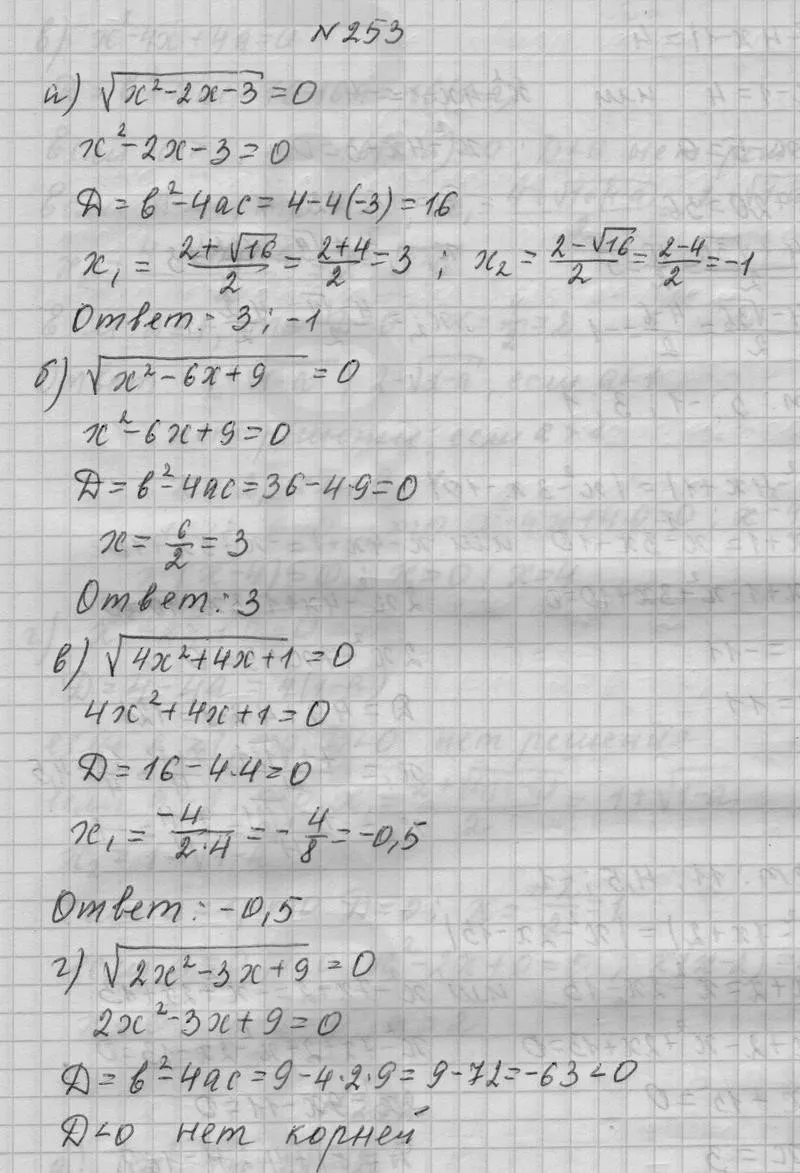 N 253
а) √(x²-2x-3) = 0
x²-2x-3=0
D = b²-4ac = 4-4(-3) = 16
x₁ = (2+√16)/2 = (2+4)/2 = 3 ; x₂ = (2-√16)/2 = (2-4)/2 = -1
Ответ: 3; -1
б) √(x²-6x+9) = 0
x²-6x+9=0
D = b²-4ac = 36-4·9=0
x = 6/2 = 3
Ответ: 3
в) √(4x²+4x+1) = 0
4x²+4x+1=0
D = 16-4·4=0
x₁ = -4/(2·4) = -4/8 = -0,5
Ответ: -0,5
г) √(2x²-3x+9) = 0
2x²-3x+9=0
D = b²-4ac = 9-4·2·9 = 9-72=-63<0
D<0 нет корней